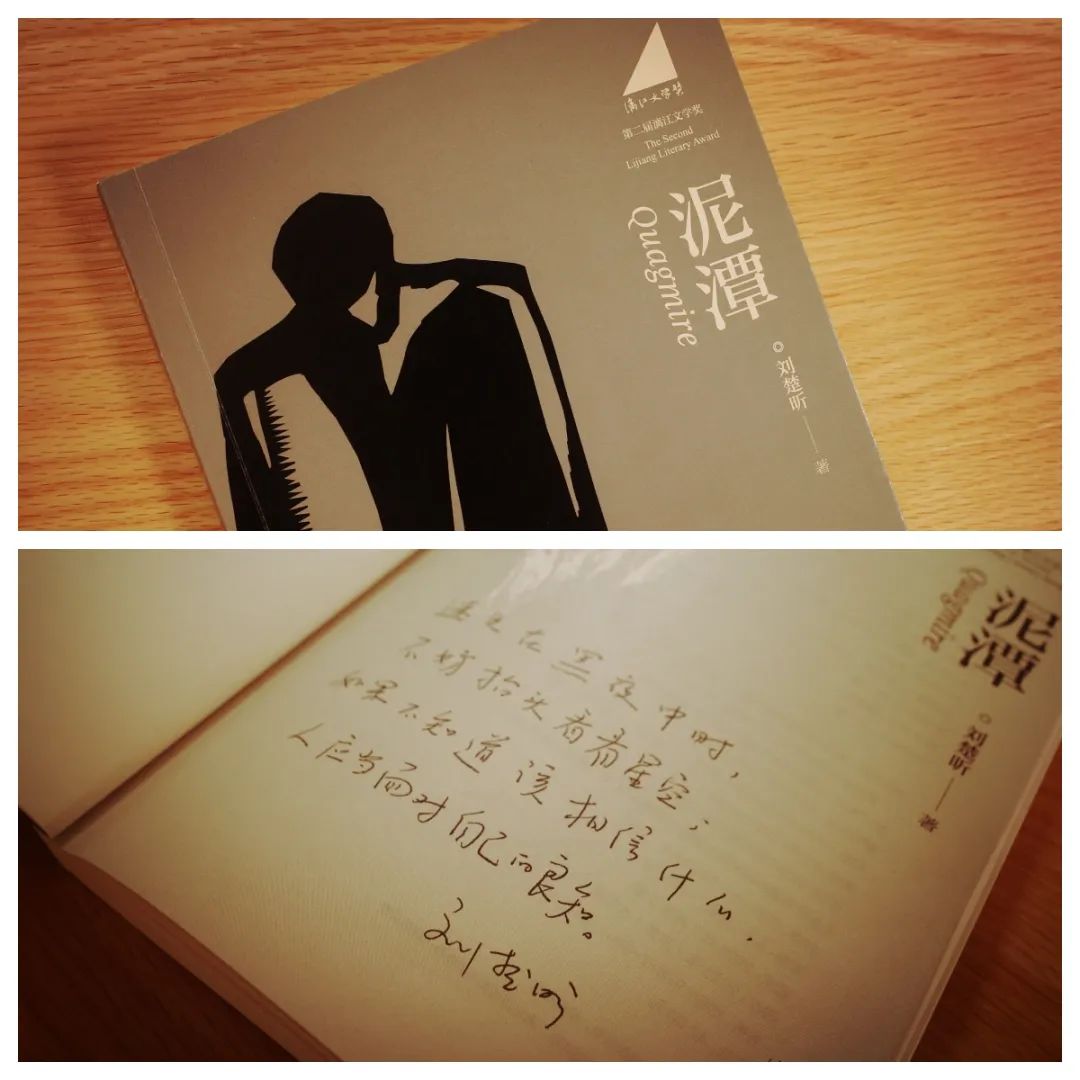 漓江文学奖
第二届漓江文学奖
The Second
Lijiang Literary Award
泥潭
Quagmire
刘楚昕——著
泥潭
Quagmire
刘楚昕——著
在黑夜中时，
不妨抬头看看星空；
如果不知道该相信什么，
人应当面对自己的良知。
刘楚昕